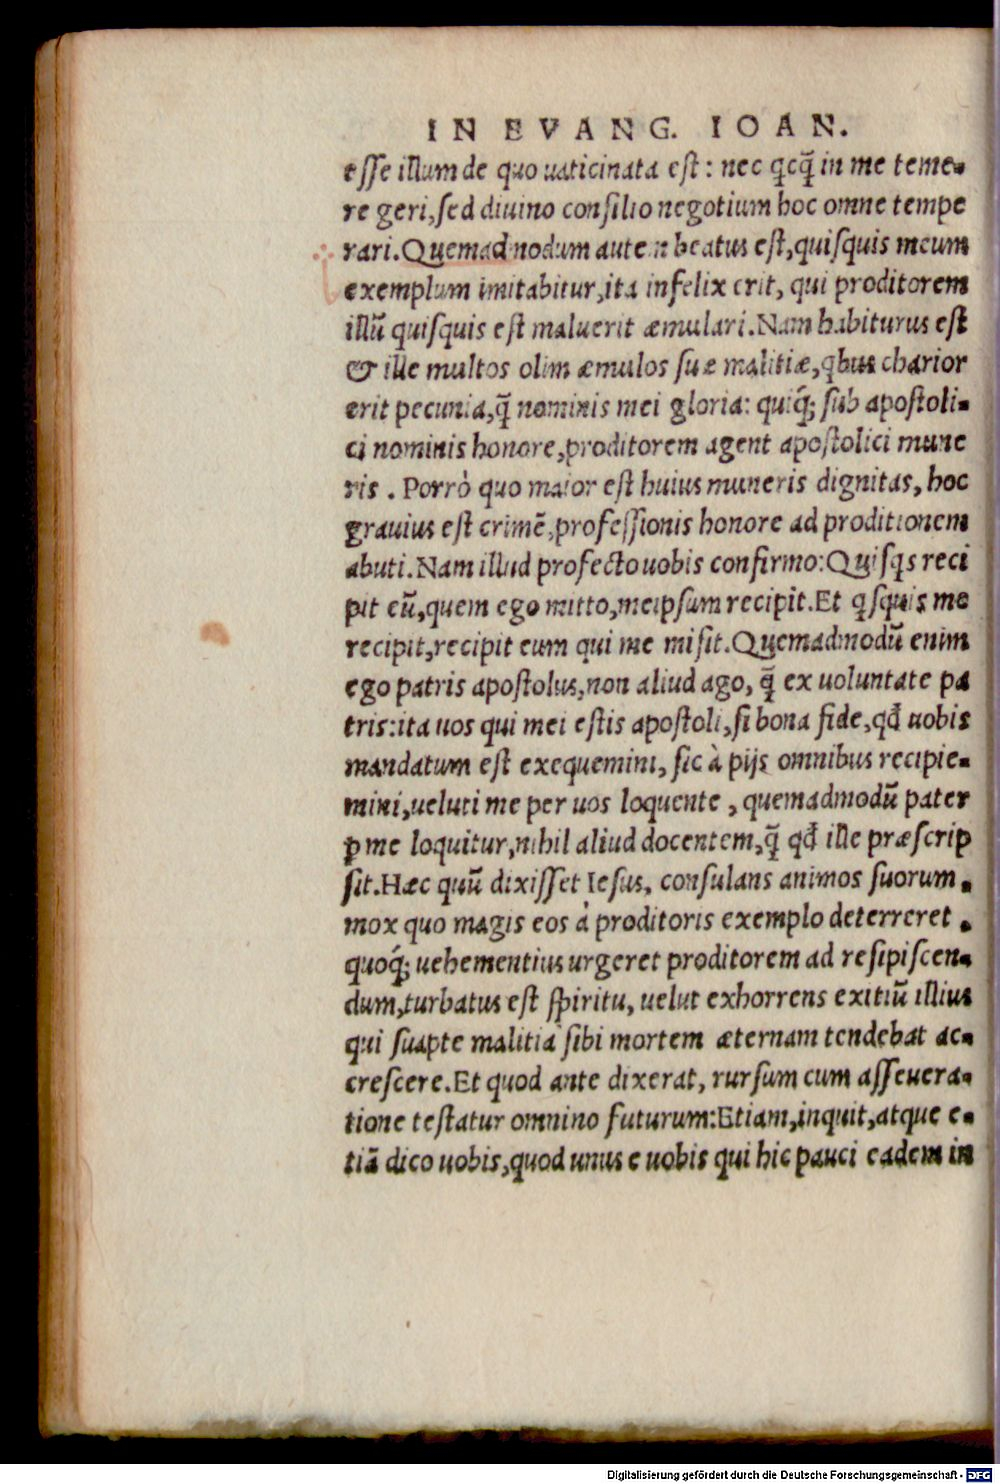 IN EVANG. IOAN.
esse illum de quo uaticinata est: nec qcq̃ in me teme-
re geri, sed diuino consilio negotium hoc omne tempe
rari. Quemadmodum autem beatus est, quisquis meum
exemplum imitabitur, ita infelix erit, qui proditorem
illũ quisquis est maluerit æmulari. Nam habiturus est
& ille multos olim æmulos suæ malitiæ, qbus charior
erit pecunia, q̃ nominis mei gloria: quiq́; sub apostoli-
ci nominis honore, proditorem agent apostolici mune
ris. Porrò quo maior est huius muneris dignitas, hoc
grauius est crimẽ, professionis honore ad proditionem
abuti. Nam illud profecto uobis confirmo: Quisqs reci
pit eũ, quem ego mitto, meipsum recipit. Et qsquis me
recipit, recipit eum qui me misit. Quemadmodũ enim
ego patris apostolus, non aliud ago, q̃ ex uoluntate pa
tris: ita uos qui mei estis apostoli, si bona fide, qđ uobis
mandatum est exequemini, sic à pijs omnibus recipie-
mini, ueluti me per uos loquente, quemadmodũ pater
ꝑ me loquitur, nihil aliud docentem, q̃ qđ ille præscrip
sit. Hæc quũ dixisset Iesus, consulans animos suorum.
mox quo magis eos à proditoris exemplo deterreret.
quoq́; uehementius urgeret proditorem ad resipiscen-
dum, turbatus est spiritu, uelut exhorrens exitiũ illius
qui suapte malitia sibi mortem æternam tendebat ac-
crescere. Et quod ante dixerat, rursum cum asseuera-
tione testatur omnino futurum: Etiam, inquit, atque e-
tiã dico uobis, quod unus e uobis qui hic pauci eadem in
Digitalisierung gefördert durch die Deutsche Forschungsgemeinschaft - DFG